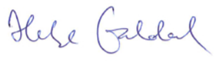 Helge Galdal